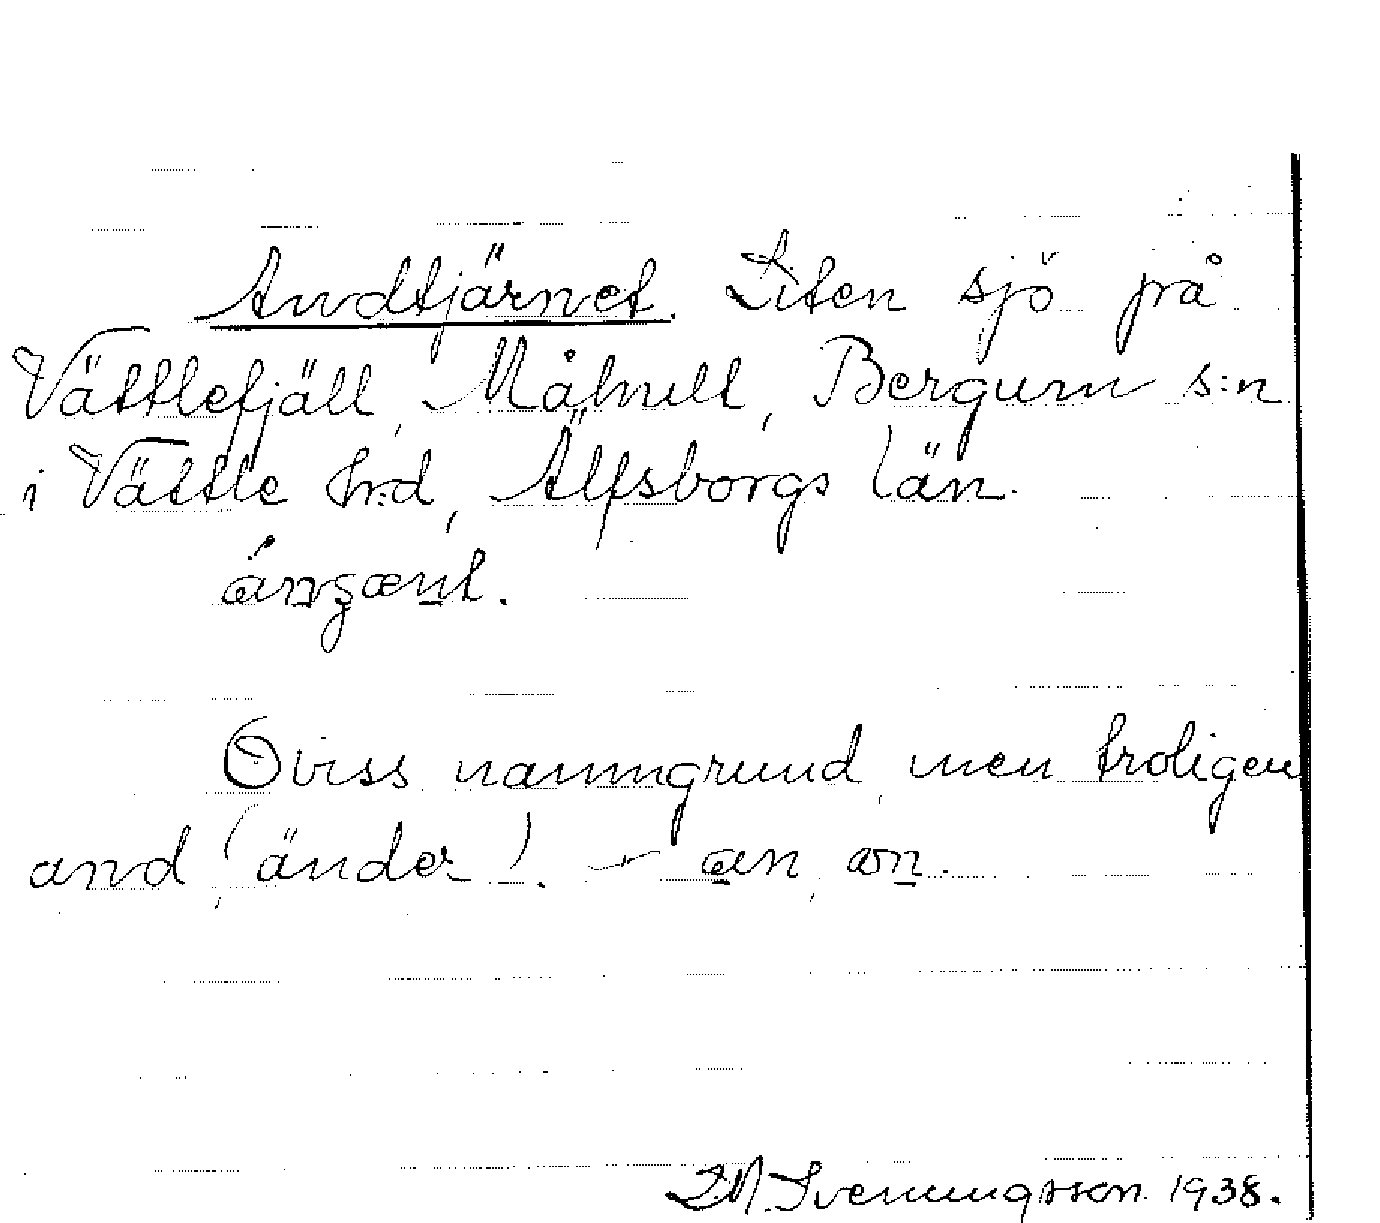 Andtjärnet. Liten sjö på
Vättlefjäll, Måhult, Bergum s:n
i Vättle hrd, Älfsborgs län.
Oviss namngrund, men troligen
and (änder). – an, æn.
Svenungsson 1938.